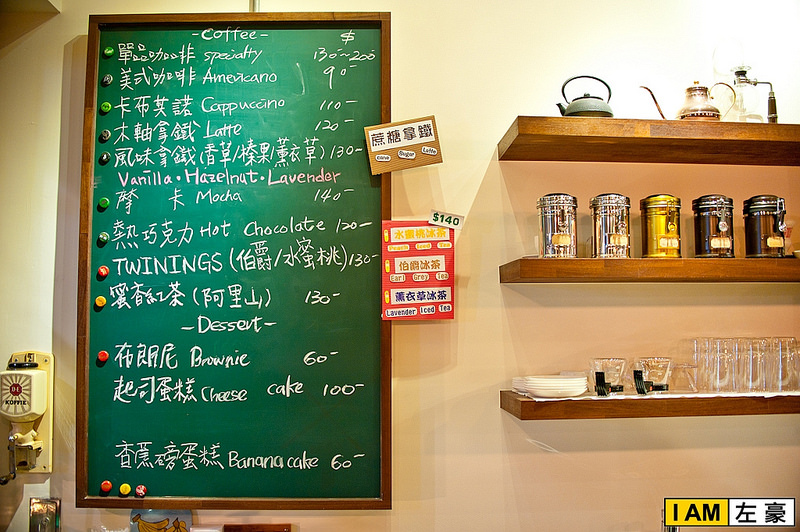 -Coffee- $
單品咖啡 specialty 130-200
美式咖啡 Americano 90-
卡布其諾 Cappuccino 110-
木軸拿鐵 Latte 120-
風味拿鐵(香草/榛果/薰衣草) 130-
Vanilla・Hazelnut・Lavender
摩 卡 Mocha 140-
熱巧克力 Hot Chocolate 120-
TWININGS (伯爵/水蜜桃) 130-
蜜香紅茶 (阿里山) 130-
-Dessert-
布朗尼 Brownie 60-
起司蛋糕 Cheese cake 100-
香蕉磅蛋糕 Banana cake 60-
蔗糖拿鐵
cane Sugar Latte
$140
水蜜桃冰茶
Peach Iced Tea
伯爵冰茶
Earl Grey Tea
薰衣草冰茶
Lavender Iced Tea
KOFFIE
I AM 左豪